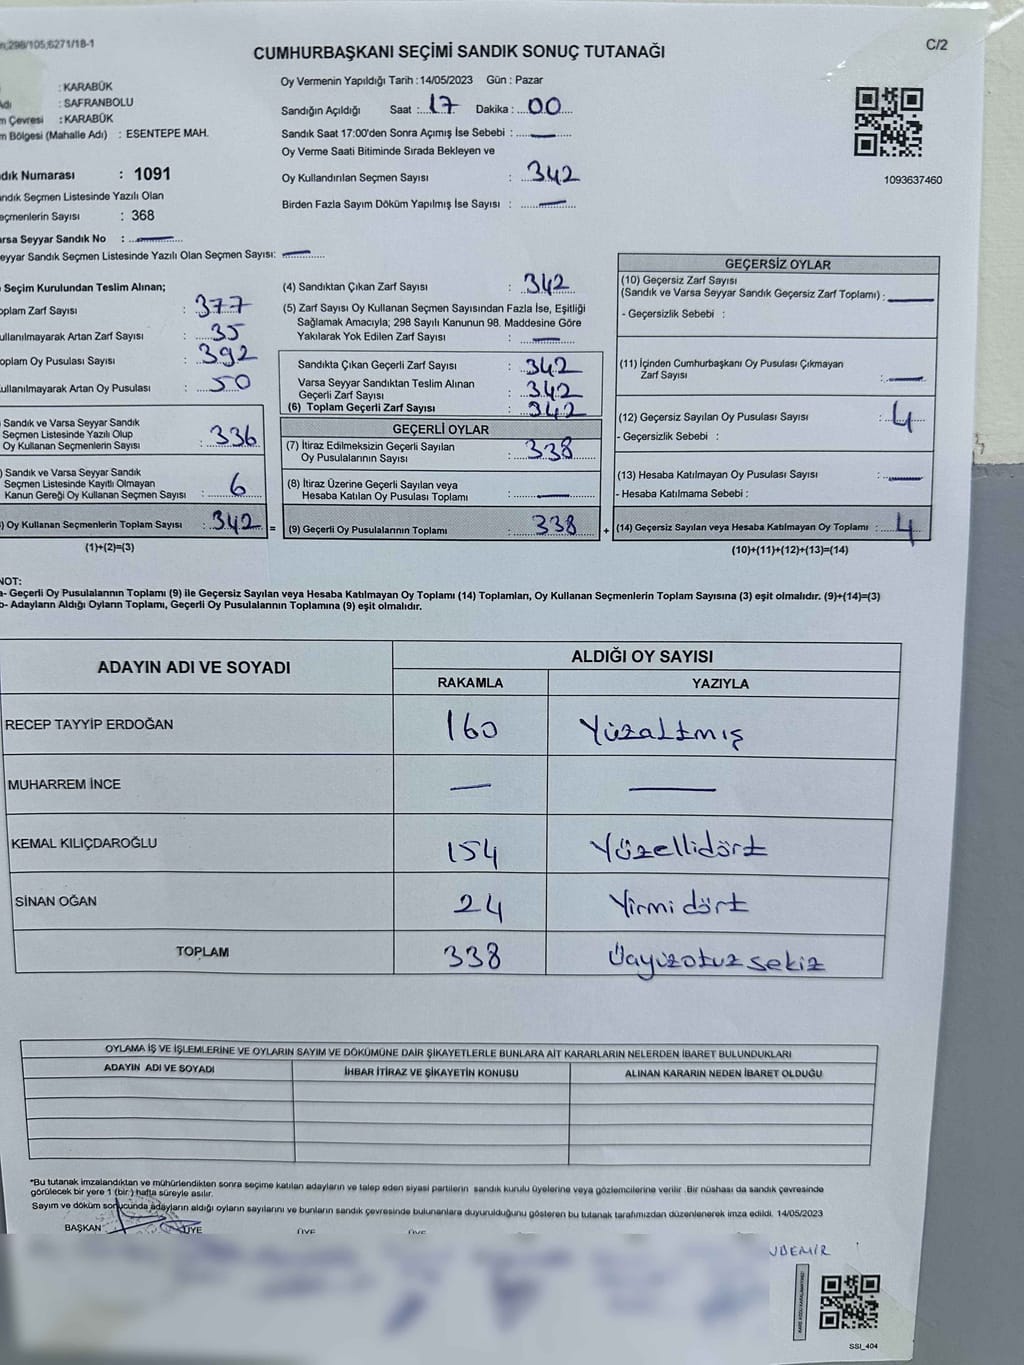 298/105;6271/18-1
C/2
CUMHURBAŞKANI SEÇİMİ SANDIK SONUÇ TUTANAĞI
: KARABÜK
: SAFRANBOLU
m Çevresi : KARABÜK
m Bölgesi (Mahalle Adı) : ESENTEPE MAH.
Oy Vermenin Yapıldığı Tarih : 14/05/2023 Gün : Pazar
Sandığın Açıldığı Saat : 17 Dakika : 00
Sandık Saat 17:00'den Sonra Açımış İse Sebebi : —
Oy Verme Saati Bitiminde Sırada Bekleyen ve
Oy Kullandırılan Seçmen Sayısı : 342
Birden Fazla Sayım Döküm Yapılmış İse Sayısı : —
1093637460
dık Numarası : 1091
andık Seçmen Listesinde Yazılı Olan
eçmenlerin Sayısı : 368
arsa Seyyar Sandık No : —
eyyar Sandık Seçmen Listesinde Yazılı Olan Seçmen Sayısı: —
Seçim Kurulundan Teslim Alınan;
oplam Zarf Sayısı : 377
ullanılmayarak Artan Zarf Sayısı : 35
oplam Oy Pusulası Sayısı : 392
ullanılmayarak Artan Oy Pusulası : 50
Sandık ve Varsa Seyyar Sandık
Seçmen Listesinde Yazılı Olup
Oy Kullanan Seçmenlerin Sayısı : 336
) Sandık ve Varsa Seyyar Sandık
Seçmen Listesinde Kayıtlı Olmayan
Kanun Gereği Oy Kullanan Seçmen Sayısı : 6
) Oy Kullanan Seçmenlerin Toplam Sayısı : 342 =
(1)+(2)=(3)
(4) Sandıktan Çıkan Zarf Sayısı : 342
(5) Zarf Sayısı Oy Kullanan Seçmen Sayısından Fazla İse, Eşitliği
Sağlamak Amacıyla; 298 Sayılı Kanunun 98. Maddesine Göre
Yakılarak Yok Edilen Zarf Sayısı : —
Sandıkta Çıkan Geçerli Zarf Sayısı : 342
Varsa Seyyar Sandıktan Teslim Alınan
Geçerli Zarf Sayısı : 342
(6) Toplam Geçerli Zarf Sayısı : 342
GEÇERLİ OYLAR
(7) İtiraz Edilmeksizin Geçerli Sayılan
Oy Pusulalarının Sayısı : 338
(8) İtiraz Üzerine Geçerli Sayılan veya
Hesaba Katılan Oy Pusulası Toplamı : —
(9) Geçerli Oy Pusulalarının Toplamı : 338 +
GEÇERSİZ OYLAR
(10) Geçersiz Zarf Sayısı
(Sandık ve Varsa Seyyar Sandık Geçersiz Zarf Toplamı) : —
- Geçersizlik Sebebi :
(11) İçinden Cumhurbaşkanı Oy Pusulası Çıkmayan
Zarf Sayısı : —
(12) Geçersiz Sayılan Oy Pusulası Sayısı : 4
- Geçersizlik Sebebi :
(13) Hesaba Katılmayan Oy Pusulası Sayısı : —
- Hesaba Katılmama Sebebi :
(14) Geçersiz Sayılan veya Hesaba Katılmayan Oy Toplamı : 4
(10)+(11)+(12)+(13)=(14)
NOT:
a- Geçerli Oy Pusulalarının Toplamı (9) ile Geçersiz Sayılan veya Hesaba Katılmayan Oy Toplamı (14) Toplamları, Oy Kullanan Seçmenlerin Toplam Sayısına (3) eşit olmalıdır. (9)+(14)=(3)
b- Adayların Aldığı Oyların Toplamı, Geçerli Oy Pusulalarının Toplamına (9) eşit olmalıdır.
ADAYIN ADI VE SOYADI
ALDIĞI OY SAYISI
RAKAMLA YAZIYLA
RECEP TAYYİP ERDOĞAN 160 Yüzaltmış
MUHARREM İNCE — —
KEMAL KILIÇDAROĞLU 154 Yüzellidört
SİNAN OĞAN 24 Yirmi dört
TOPLAM 338 Üçyüzotuz sekiz
OYLAMA İŞ VE İŞLEMLERİNE VE OYLARIN SAYIM VE DÖKÜMÜNE DAİR ŞİKAYETLERLE BUNLARA AİT KARARLARIN NELERDEN İBARET BULUNDUKLARI
ADAYIN ADI VE SOYADI İHBAR İTİRAZ VE ŞİKAYETİN KONUSU ALINAN KARARIN NEDEN İBARET OLDUĞU
*Bu tutanak imzalandıktan ve mühürlendikten sonra seçime katılan adayların ve talep eden siyasi partilerin sandık kurulu üyelerine veya gözlemcilerine verilir. Bir nüshası da sandık çevresinde
görülecek bir yere 1 (bir) hafta süreyle asılır.
Sayım ve döküm sonucunda adayların aldığı oyların sayılarını ve bunların sandık çevresinde bulunanlara duyurulduğunu gösteren bu tutanak tarafımızdan düzenlenerek imza edildi. 14/05/2023
BAŞKAN ÜYE ÜYE ÜYE
UDEMİR
SSI_404